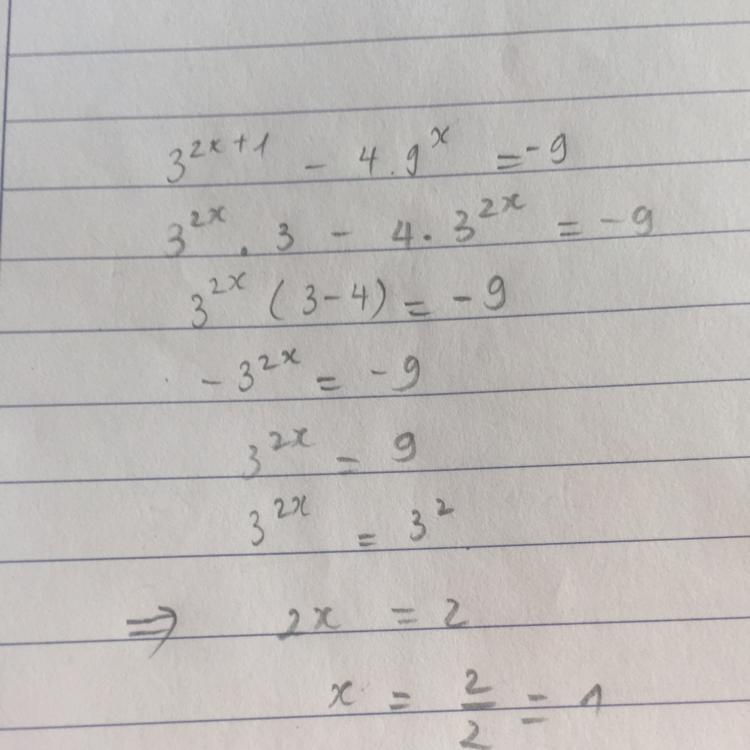 3^{2x+1} - 4.9^x = -9
3^{2x} . 3 - 4. 3^{2x} = -9
3^{2x} (3-4) = -9
-3^{2x} = -9
3^{2x} = 9
3^{2x} = 3^2
⇒ 2x = 2
x = \frac{2}{2} = 1